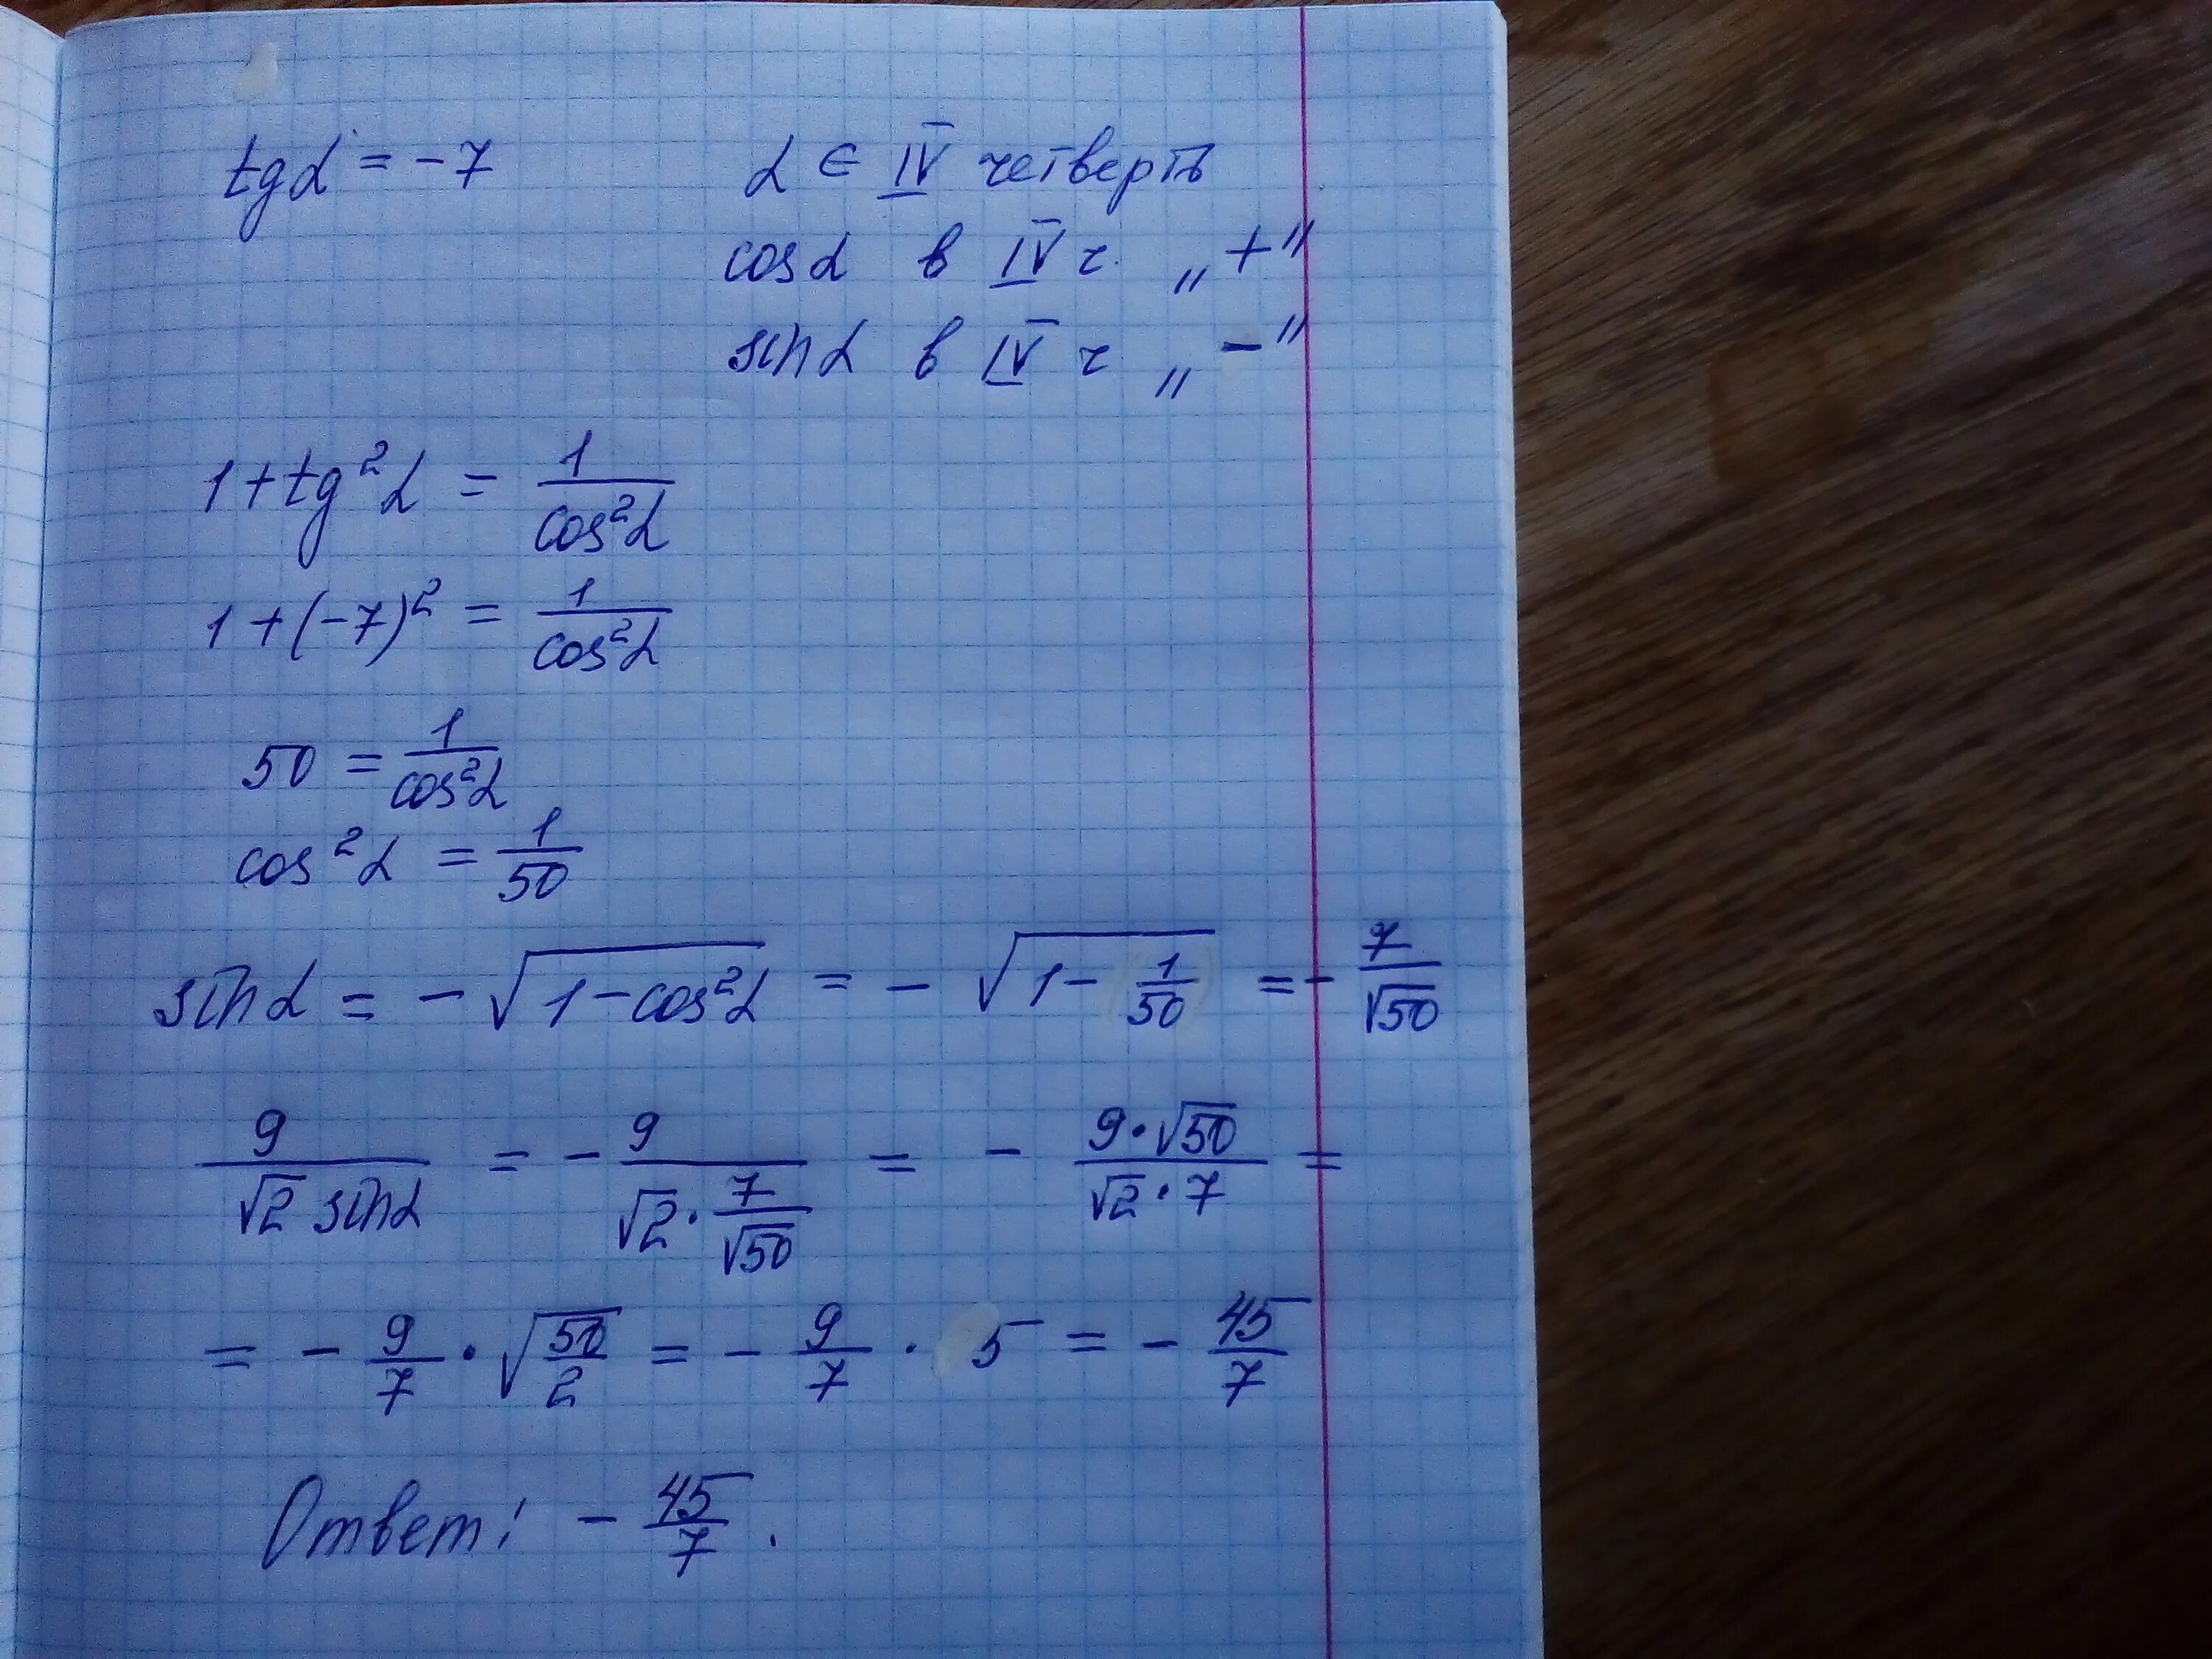 tgα = -7    α ∈ IV четверть
cosα в IV ч. „+"
sinα в IV ч „-"
1 + tg²α = 1/cos²α
1 + (-7)² = 1/cos²α
50 = 1/cos²α
cos²α = 1/50
sinα = -√(1 - cos²α) = -√(1 - 1/50) = -7/√50
9/(√2 sinα) = -9/(√2 · 7/√50) = - (9·√50)/(√2·7) =
= - 9/7 · √(50/2) = - 9/7 · 5 = - 45/7
Ответ: - 45/7.